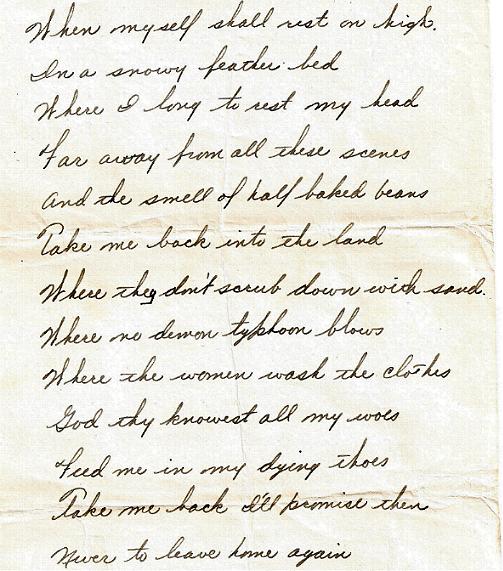 When myself shall rest on high.
In a snowy feather bed
Where I long to rest my head
Far away from all these scenes
And the smell of half baked beans
Take me back into the land
Where they don't scrub down with sand.
Where no demon typhoon blows
Where the women wash the clothes
God thy knowest all my woes
Feed me in my dying thoes
Take me back I'll promise then
Never to leave home again